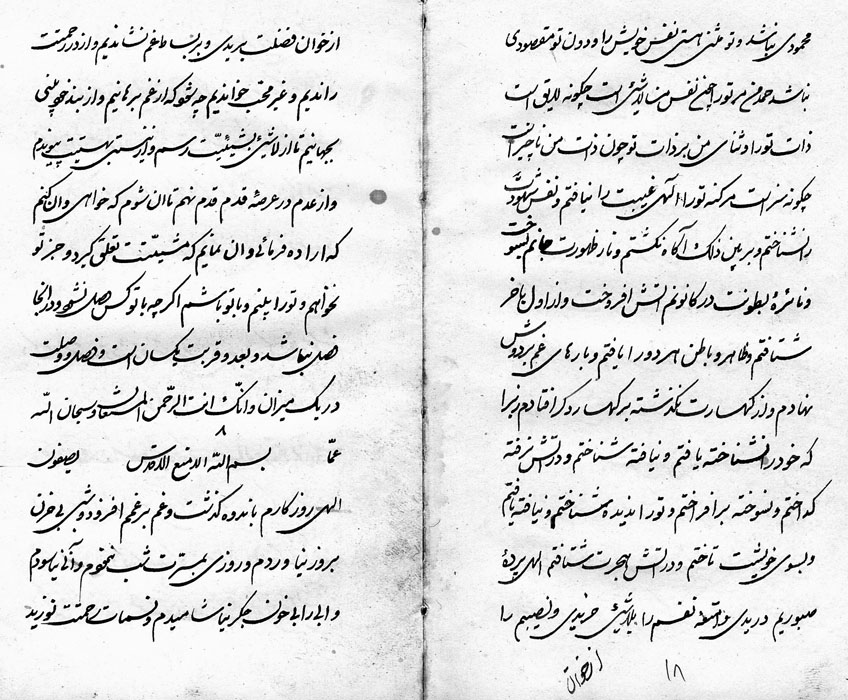 محمودی نباشد و تو مثنی استی نفس خویش را و دون تو مقصودی
نباشد حمد من مر تو را چون نفس من لاشیئی است چگونه لایق است
ذات تو را و ثنای من بر ذات تو چون ذات من ناچیز است
چگونه سزاست مر کنه تو را الهی غیبت را نیافتم و نفس شهودت
را نشناختم و بر بین ذلک آگاه نگشتم و نار ظهورت جانم بسوخت
و نائرهٔ بطونت در کانونم آتش افروخت و از اول بآخر
شتافتم و ظاهر و باطن هر دو را یافتم و بارهای غم بر دوش
نهادم و از کهسارت نگذشته بر کهسار دگر افتادم زیرا
که خود را نشناخته یافتم و نیافته شناختم و در آتش نرفته
گداختم و نسوخته برافراختم و تو را ندیده شناختم و نیافته یافتم
و بسوی خویشت تاختم و در آتش هجرت شتافتم الهی پردهٔ
صبوریم دریدی و امتعه نفسم را بلاشیئی خریدی و نصیبم را
۱۸
از خوان
از خوان فضلت بریدی و بر بساط غم نشاندیم و از در رحمتت
راندیم و غیر محب خواندیم چه شود که از غم برهانیم و از بند خودبینی
بجهانیم تا از لاشیئی بشیئیت رسم و از نیستی بهستیت پیوندم
و از عدم در عرصهٔ قدم قدم نهم تا آن شوم که خواهی و آن کنم
که اراده فرمائی و آن نمایم که مشیتت تعلق گیرد و جز تو
نخواهم و تو را بینم و با تو باشم اگر چه با تو کس وصل نشود و در آنجا
فصل نباشد و بعد و قربت یکسان است و فصل و وصلت
در یک میزان و انک انت الرحمن المستعان و سبحان الله
عما یصفون
۸
بسم الله الامنع الاقدس
الهی روزگارم باندوه گذشت و غم بر غمم افزود و شبی بی حزن
بروز نیاوردم و روزی بمسرت شب نبردم و آنی نیاسودم
و آبی را بی خون جگر نیاشامیدم و نسمات رحمتت نوزید